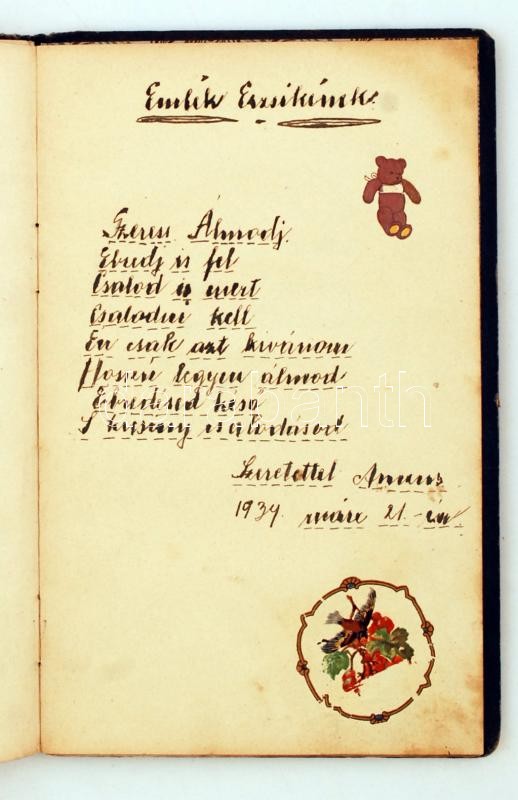 Emlék Erzsikének
Szeress Álmodj.
Ebredj is fel
Csalod is mert
Csalodni kell
En csak azt kivánom
Hosszú legyen álmod
Ebredésed késő
S kicsiny csalodásod
Szeretettel
1934. márc 21.-én